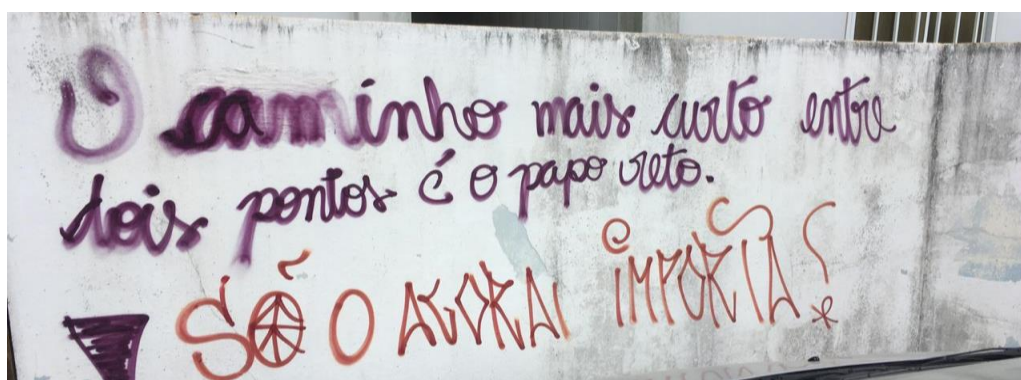 O caminho mais curto entre
dois pontos é o papo reto.
SÓ O AGORA IMPORTA!